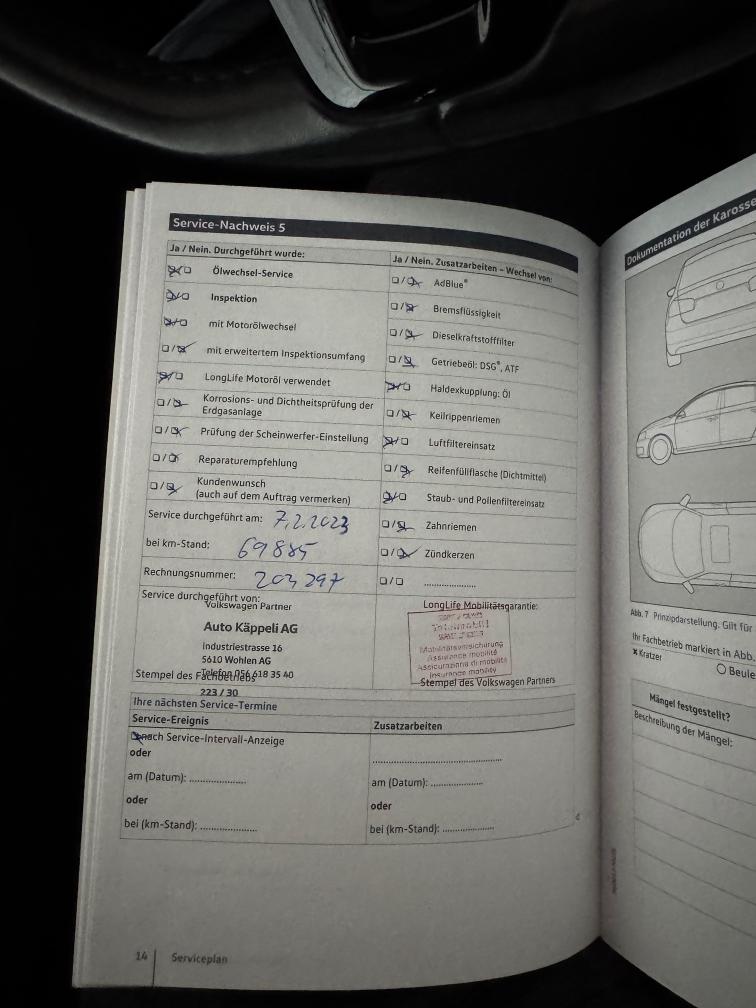 Service-Nachweis 5
Ja / Nein. Durchgeführt wurde:
Ölwechsel-Service
Inspektion
mit Motorölwechsel
mit erweitertem Inspektionsumfang
LongLife Motoröl verwendet
Korrosions- und Dichtheitsprüfung der
Erdgasanlage
Prüfung der Scheinwerfer-Einstellung
Reparaturempfehlung
Kundenwunsch
(auch auf dem Auftrag vermerken)
Ja / Nein. Zusatzarbeiten – Wechsel von:
AdBlue®
Bremsflüssigkeit
Dieselkraftstofffilter
Getriebeöl: DSG®, ATF
Haldexkupplung: Öl
Keilrippenriemen
Luftfiltereinsatz
Reifenfüllflasche (Dichtmittel)
Staub- und Pollenfiltereinsatz
Zahnriemen
Zündkerzen
Service durchgeführt am: 7.2.2023
bei km-Stand: 69885
Rechnungsnummer: 203 297
Service durchgeführt von:
Volkswagen Partner
Auto Käppeli AG
Industriestrasse 16
5610 Wohlen AG
Telefon 056 618 35 40
Stempel des Fachbetriebs
223 / 30
LongLife Mobilitätsgarantie:
Totalmobil!
Mobilitätsversicherung
Assurance mobilité
Assicurazione di mobilità
Insurance mobility
Stempel des Volkswagen Partners
Ihre nächsten Service-Termine
Service-Ereignis
nach Service-Intervall-Anzeige
oder
am (Datum): ....................
oder
bei (km-Stand): ....................
Zusatzarbeiten
am (Datum): ....................
oder
bei (km-Stand): ....................
14 Serviceplan
Dokumentation der Karosse
Abb. 7 Prinzipdarstellung. Gilt für
Ihr Fachbetrieb markiert in Abb.
x Kratzer
O Beule
Mängel festgestellt?
Beschreibung der Mängel: